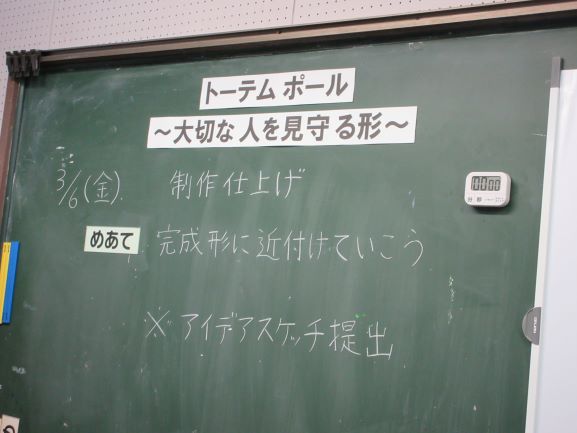 トーテム ポール
～大切な人を見守る形～
3/6(金).　制作仕上げ
めあて　完成形に近付けていこう
※アイデアスケッチ提出